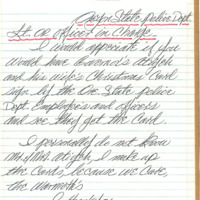 Oregon State police Dept.
Lt. or officer in Charge.
I would appreciate if you
would have Governor's Atiyeh
and his wife's Christmas Card
sign by the Or. State police
Dept. Employee's and officers
and see they get the Card.
I personally do not know
Mr/Mrs. Atiyeh, I make up
the Cards, because we care,
the